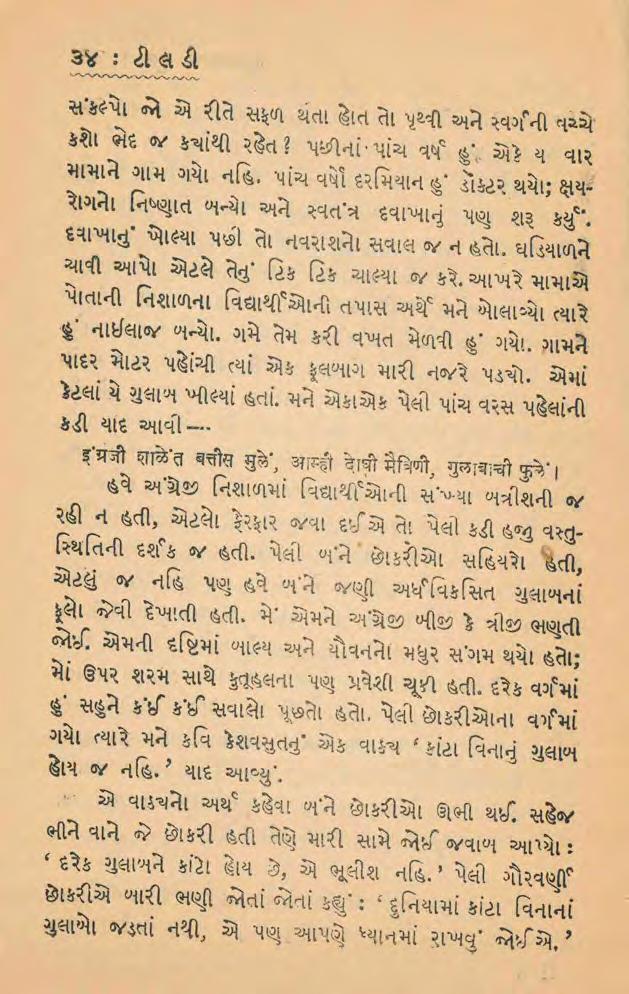 ૩૪ : ટી લ ડી
સંકલ્પો જો એ રીતે સફળ થતા હોત તો પૃથ્વી અને સ્વર્ગની વચ્ચે
કશો ભેદ જ કયાંથી રહેત? પછીનાં પાંચ વર્ષ હું એકે ય વાર
મામાને ગામ ગયો નહિ. પાંચ વર્ષો દરમિયાન હું ડૉક્ટર થયો; ક્ષય-
રોગનો નિષ્ણાત બન્યો અને સ્વતંત્ર દવાખાનું પણ શરૂ કર્યું.
દવાખાનું ખોલ્યા પછી તો નવરાશનો સવાલ જ ન હતો. ઘડિયાળને
ચાવી આપો એટલે તેનું ટિક ટિક ચાલ્યા જ કરે. આખરે મામાએ
પોતાની નિશાળના વિદ્યાર્થીઓની તપાસ અર્થે મને બોલાવ્યો ત્યારે
હું નાઈલાજ બન્યો. ગમે તેમ કરી વખત મેળવી હું ગયો. ગામને
પાદર મોટર પહોંચી ત્યાં એક ફૂલબાગ મારી નજરે પડયો. એમાં
કેટલાં યે ગુલાબ ખીલ્યાં હતાં. મને એકાએક પેલી પાંચ વરસ પહેલાંની
કડી યાદ આવી—
इंग्रजी शाळेंत बत्तीस मुलें, आम्ही दोघी मैत्रिणी, गुलाबाची फुलें।
હવે અંગ્રેજી નિશાળમાં વિદ્યાર્થીઓની સંખ્યા બત્રીશની જ
રહી ન હતી, એટલો ફેરફાર જવા દઈએ તો પેલી કડી હજુ વસ્તુ-
સ્થિતિની દર્શક જ હતી. પેલી બંને છોકરીઓ સહિયરો હતી,
એટલું જ નહિ પણ હવે બંને જણી અર્ધવિકસિત ગુલાબનાં
ફૂલો જેવી દેખાતી હતી. મેં એમને અંગ્રેજી બીજી કે ત્રીજી ભણતી
જોઈ. એમની દષ્ટિમાં બાલ્ય અને યૌવનનો મધુર સંગમ થયો હતો;
મોં ઉપર શરમ સાથે કુતૂહલના પણ પ્રવેશી ચૂકી હતી. દરેક વર્ગમાં
હું સહુને કંઈ કંઈ સવાલો પૂછતો હતો. પેલી છોકરીઓના વર્ગમાં
ગયો ત્યારે મને કવિ કેશવસુતનું એક વાક્ય ‘ કાંટા વિનાનું ગુલાબ
હોય જ નહિ.’ યાદ આવ્યું.
એ વાકયનો અર્થ કહેવા બંને છોકરીઓ ઊભી થઈ. સહેજ
ભીને વાને જે છોકરી હતી તેણે મારી સામે જોઈ જવાબ આપ્યો :
‘ દરેક ગુલાબને કાંટો હોય છે, એ ભૂલીશ નહિ.’ પેલી ગૌરવર્ણી
છોકરીએ બારી ભણી જોતાં જોતાં કહ્યું : ‘ દુનિયામાં કાંટા વિનાનાં
ગુલાબો જડતાં નથી, એ પણ આપણે ધ્યાનમાં રાખવું જોઈએ.’